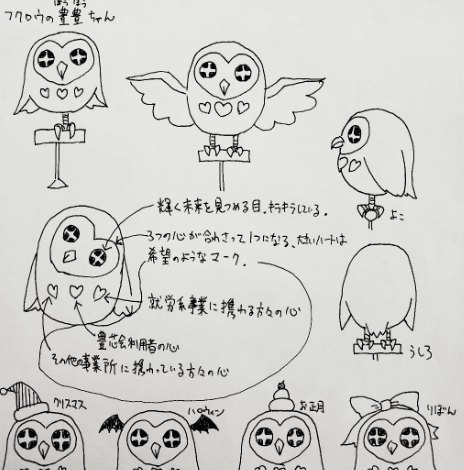 ほうほう
フクロウの豊豊ちゃん
よこ
輝く未来を見つめる目、キラキラしている。
3つの心が合わさって1つになる、大きいハートは
希望のようなマーク。
就労系事業に携わる方々の心
豊芯会利用者の心
その他の事業所に携わっている方々の心
うしろ
クリスマス
ハロウィン
お正月
りぼん